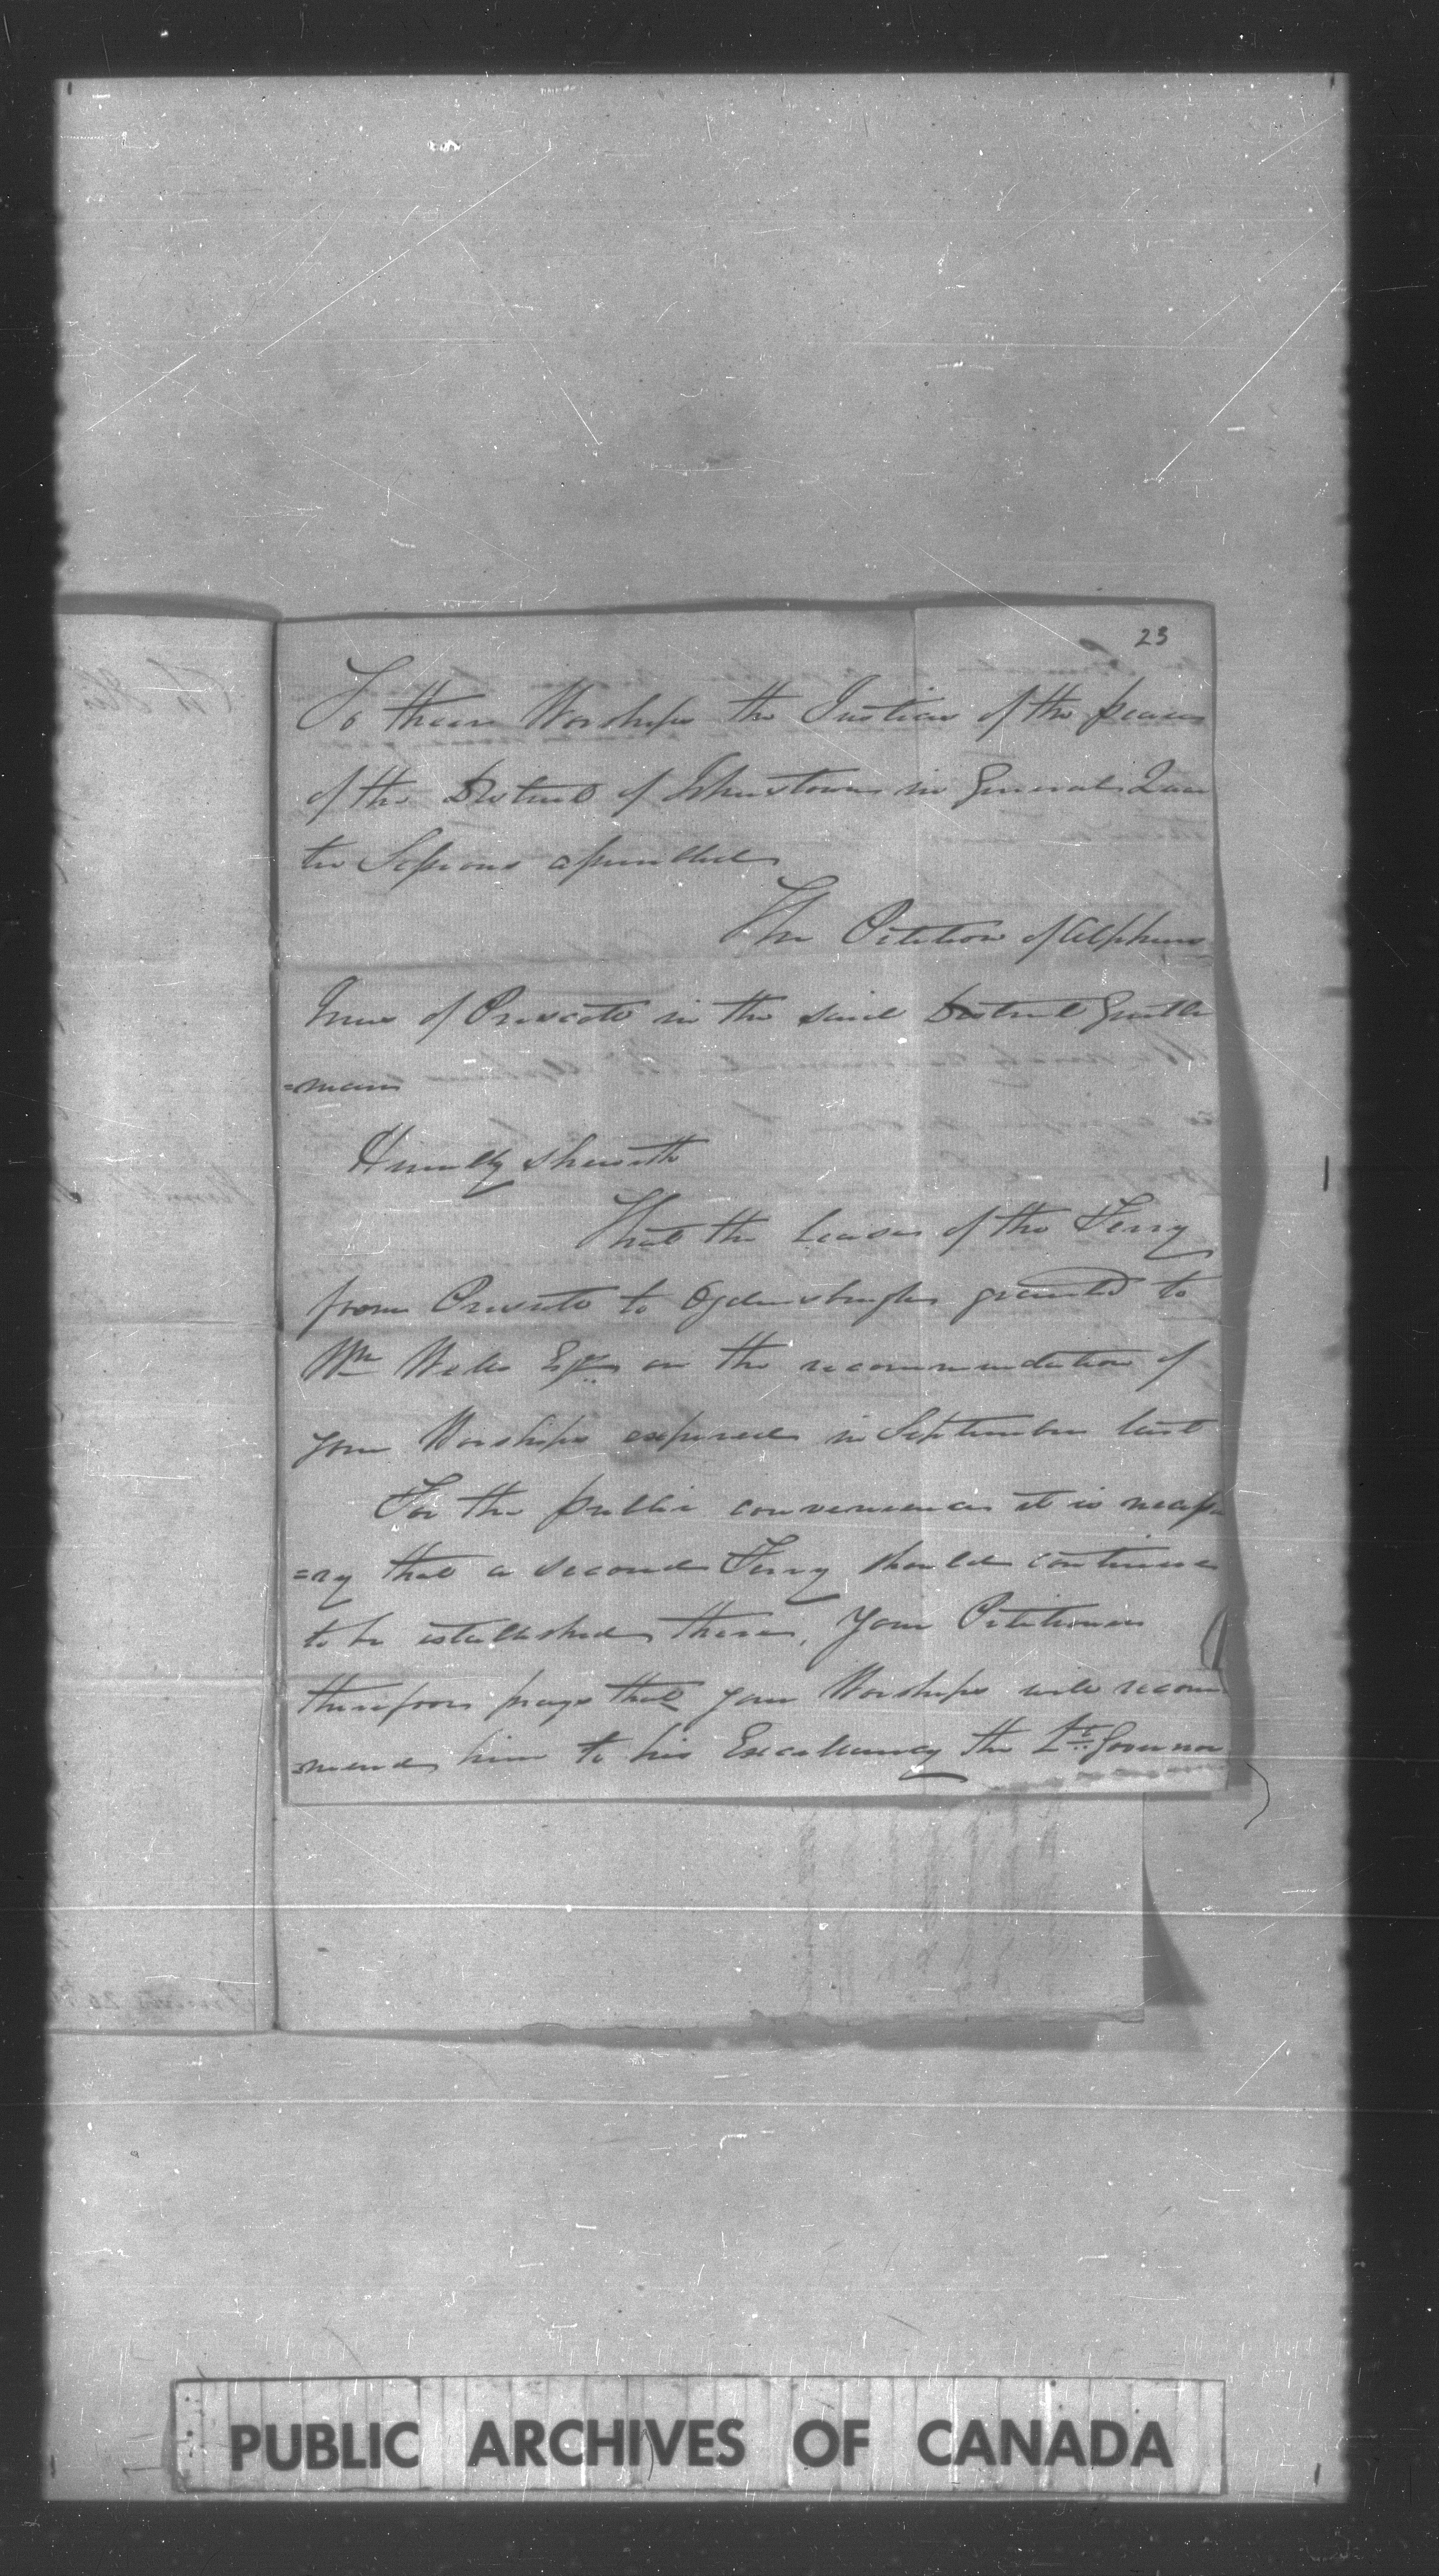 23
To their Worships the Justices of the peace
of the District of Johnstown in General Quar
ter Sessions assembled
The Petition of Alpheus
Jones of Prescott in the said District Gentle
=man
Humbly Sheweth
That the Lease of the Ferry
from Prescott to Ogdensburgh granted to
Wm Wells Esqr on the recommendation of
your Worships expired in September last
For the public convenience it is necessa
=ry that a second Ferry should continue
to be established there, Your Petitioner
therefore prays that your Worships will recom
=mend him to his Excellency the Lt. Governor
PUBLIC ARCHIVES OF CANADA